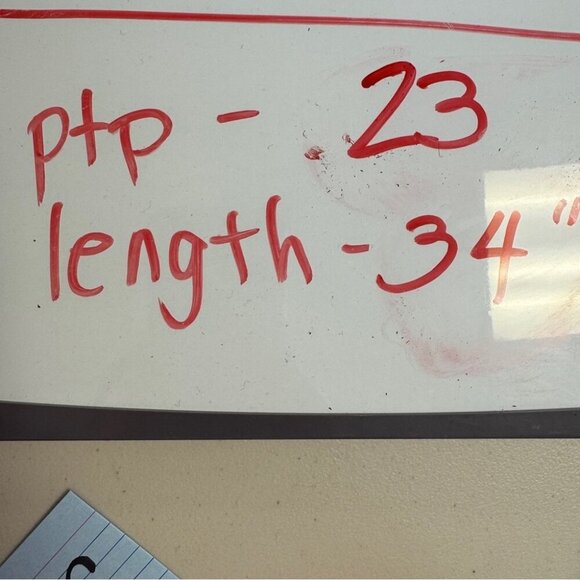 ptp - 23
length - 34"